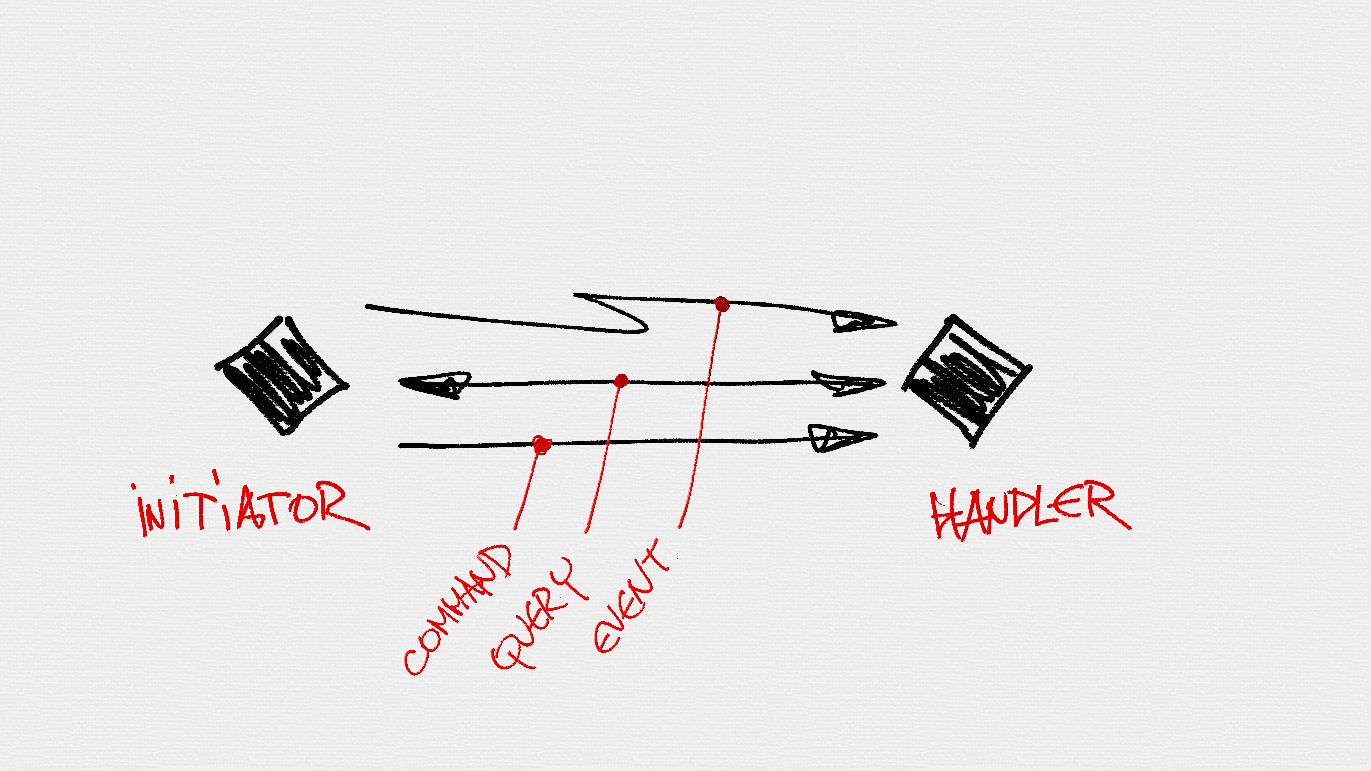 INITIATOR
HANDLER
COMMAND
QUERY
EVENT